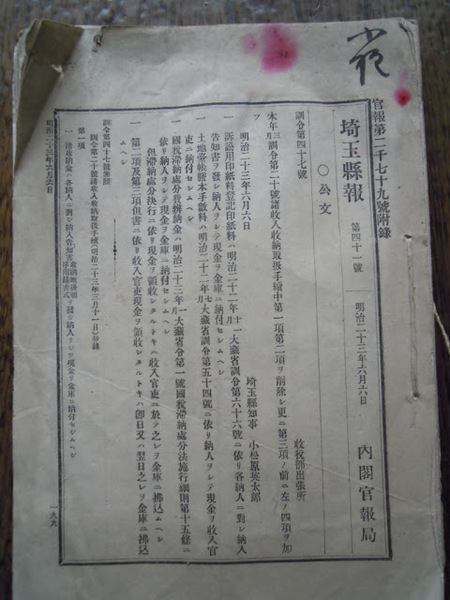 官報第二千七十九號附錄
埼玉縣報
第四十一號
明治二十三年六月六日
內閣官報局
○公文
訓令第四十七號
收稅部出張所
本年三月訓令第二十號諸收入收納取扱手續中第一項第二項ヲ削除シ更ニ第三項ノ前ニ左ノ四項ヲ加フ
明治二十三年六月六日
埼玉縣知事 小松原英太郎
一 訴訟用印紙料登記印紙料ハ明治二十二年十一月大藏省訓令第六十六號ニ依リ各納人ニ對シ納入告知書ヲ發シ現金ヲ金庫ニ納付セシムヘシ
一 土地臺帳謄本手數料ハ明治二十二年七月大藏省訓令第五十四號ニ依リ納人ヲシテ現金ヲ收入官吏ニ納付セシムヘシ
一 國稅滯納處分費辨納金ハ明治二十三年一月大藏省令第一號國稅滯納處分法施行細則第十五條ニ依リ納人ヲシテ現金ヲ金庫ニ納付セシムヘシ
但滯納處分執行ニ依リ現金ヲ領收シタルトキハ收入官吏ニ於テ之レヲ金庫ニ拂込ムヘシ
一 第二項及第三項但書ニ依リ收入官吏現金ヲ領收シタルトキハ卽日又ハ翌日之レヲ金庫ニ拂込ムヘシ
訓令第四十七號參照
訓令第二十號諸收入收納取扱手續(明治二十三年三月十一日)抄錄
第一項
明治二十三年六月六日
一九九